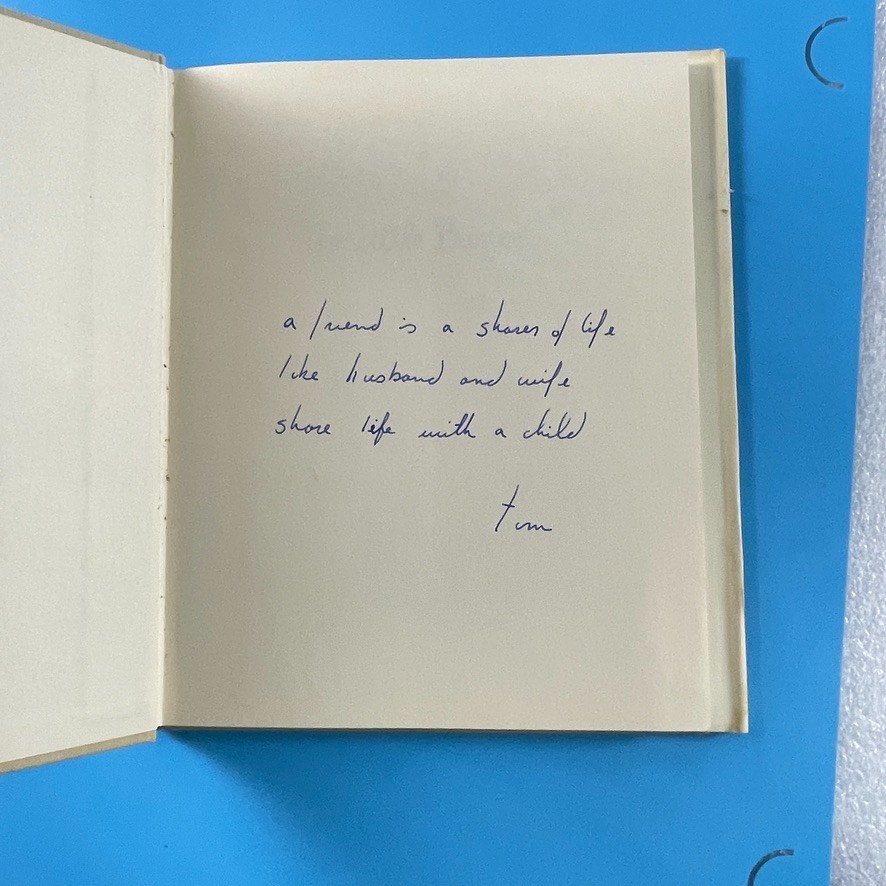 a friend is a sharer of life
like husband and wife
share life with a child
tom